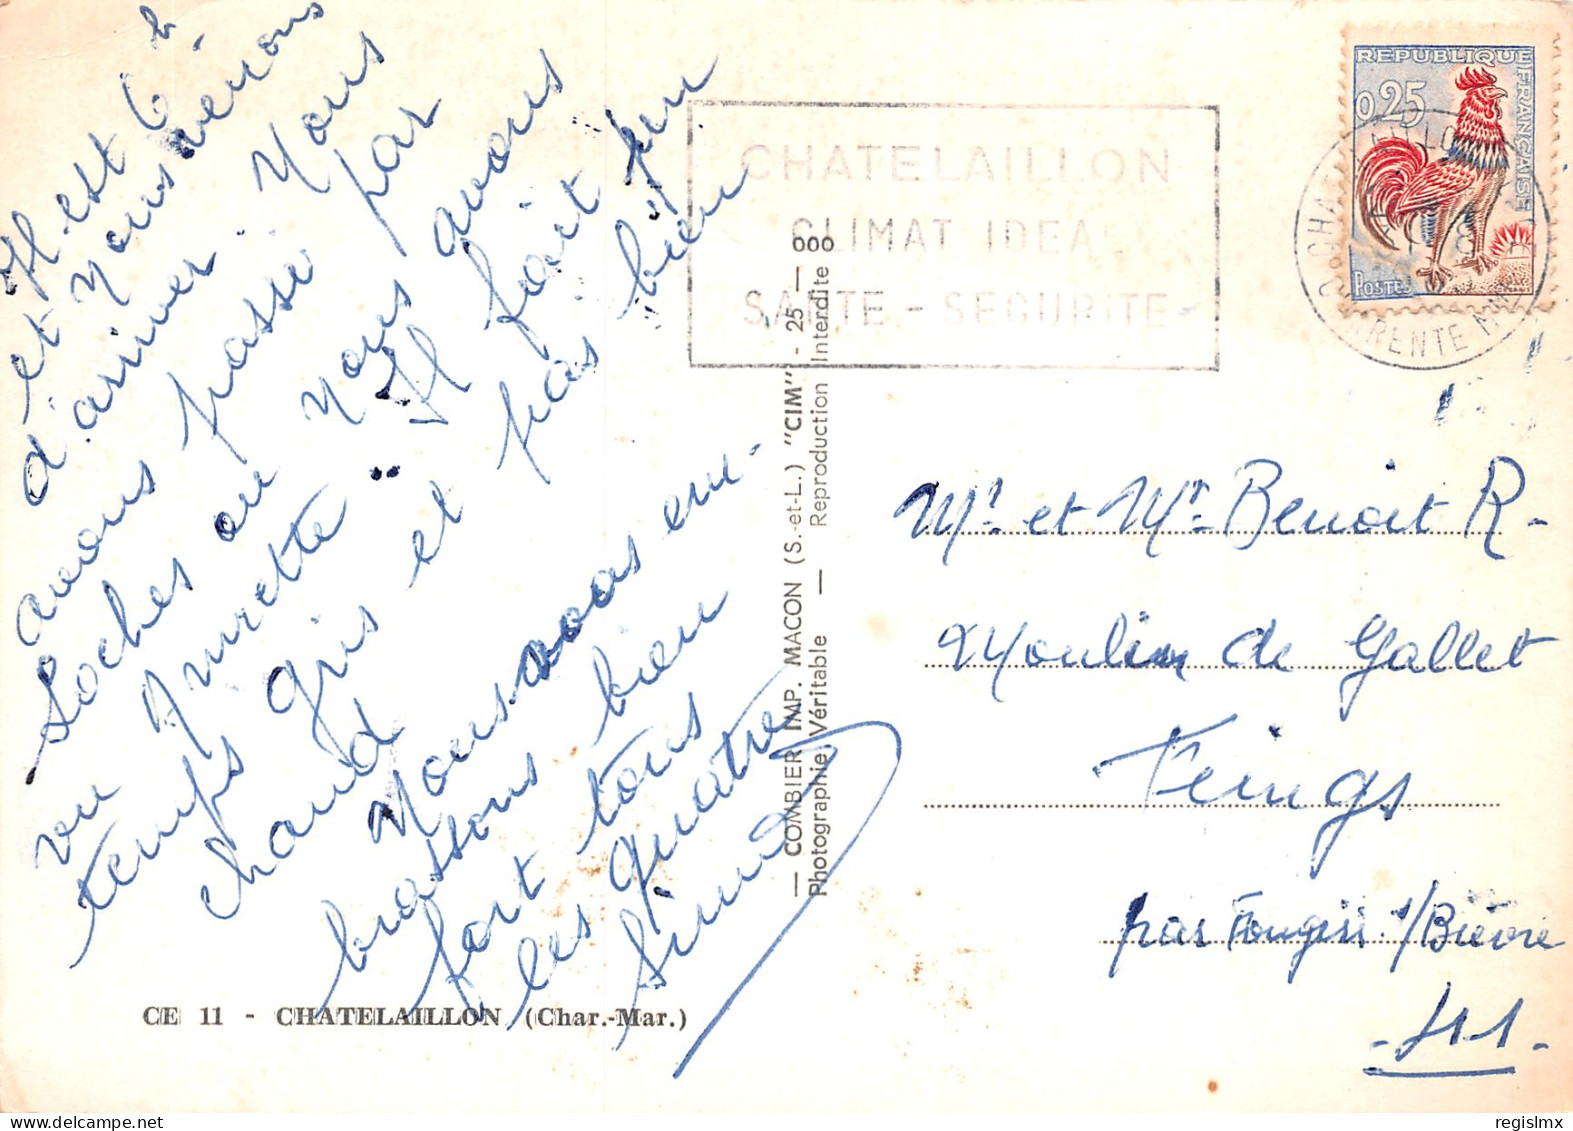 Il est 6 h
et nous venons
d'arriver. Nous
avons passé par
Loches où nous avons
vu Ginette. Il fait un
temps gris et pas bien
chaud
Nous vous em-
brassons bien
fort tous
les quatre
Simone
CE 11 - CHATELAILLON (Char.-Mar.)
— COMBIER IMP. MACON (S.-et-L.) "CIM" - 25 — 000
Photographie Véritable — Reproduction Interdite
CHATELAILLON
CLIMAT IDEAL
SANTE - SECURITE
REPUBLIQUE FRANCAISE
0,25
POSTES
CHARENTE MME
Mr et Mr Benoit R-
Moulin de Gallet
Feings
par Fougères s/Bièvre
- 41 -
regislmx